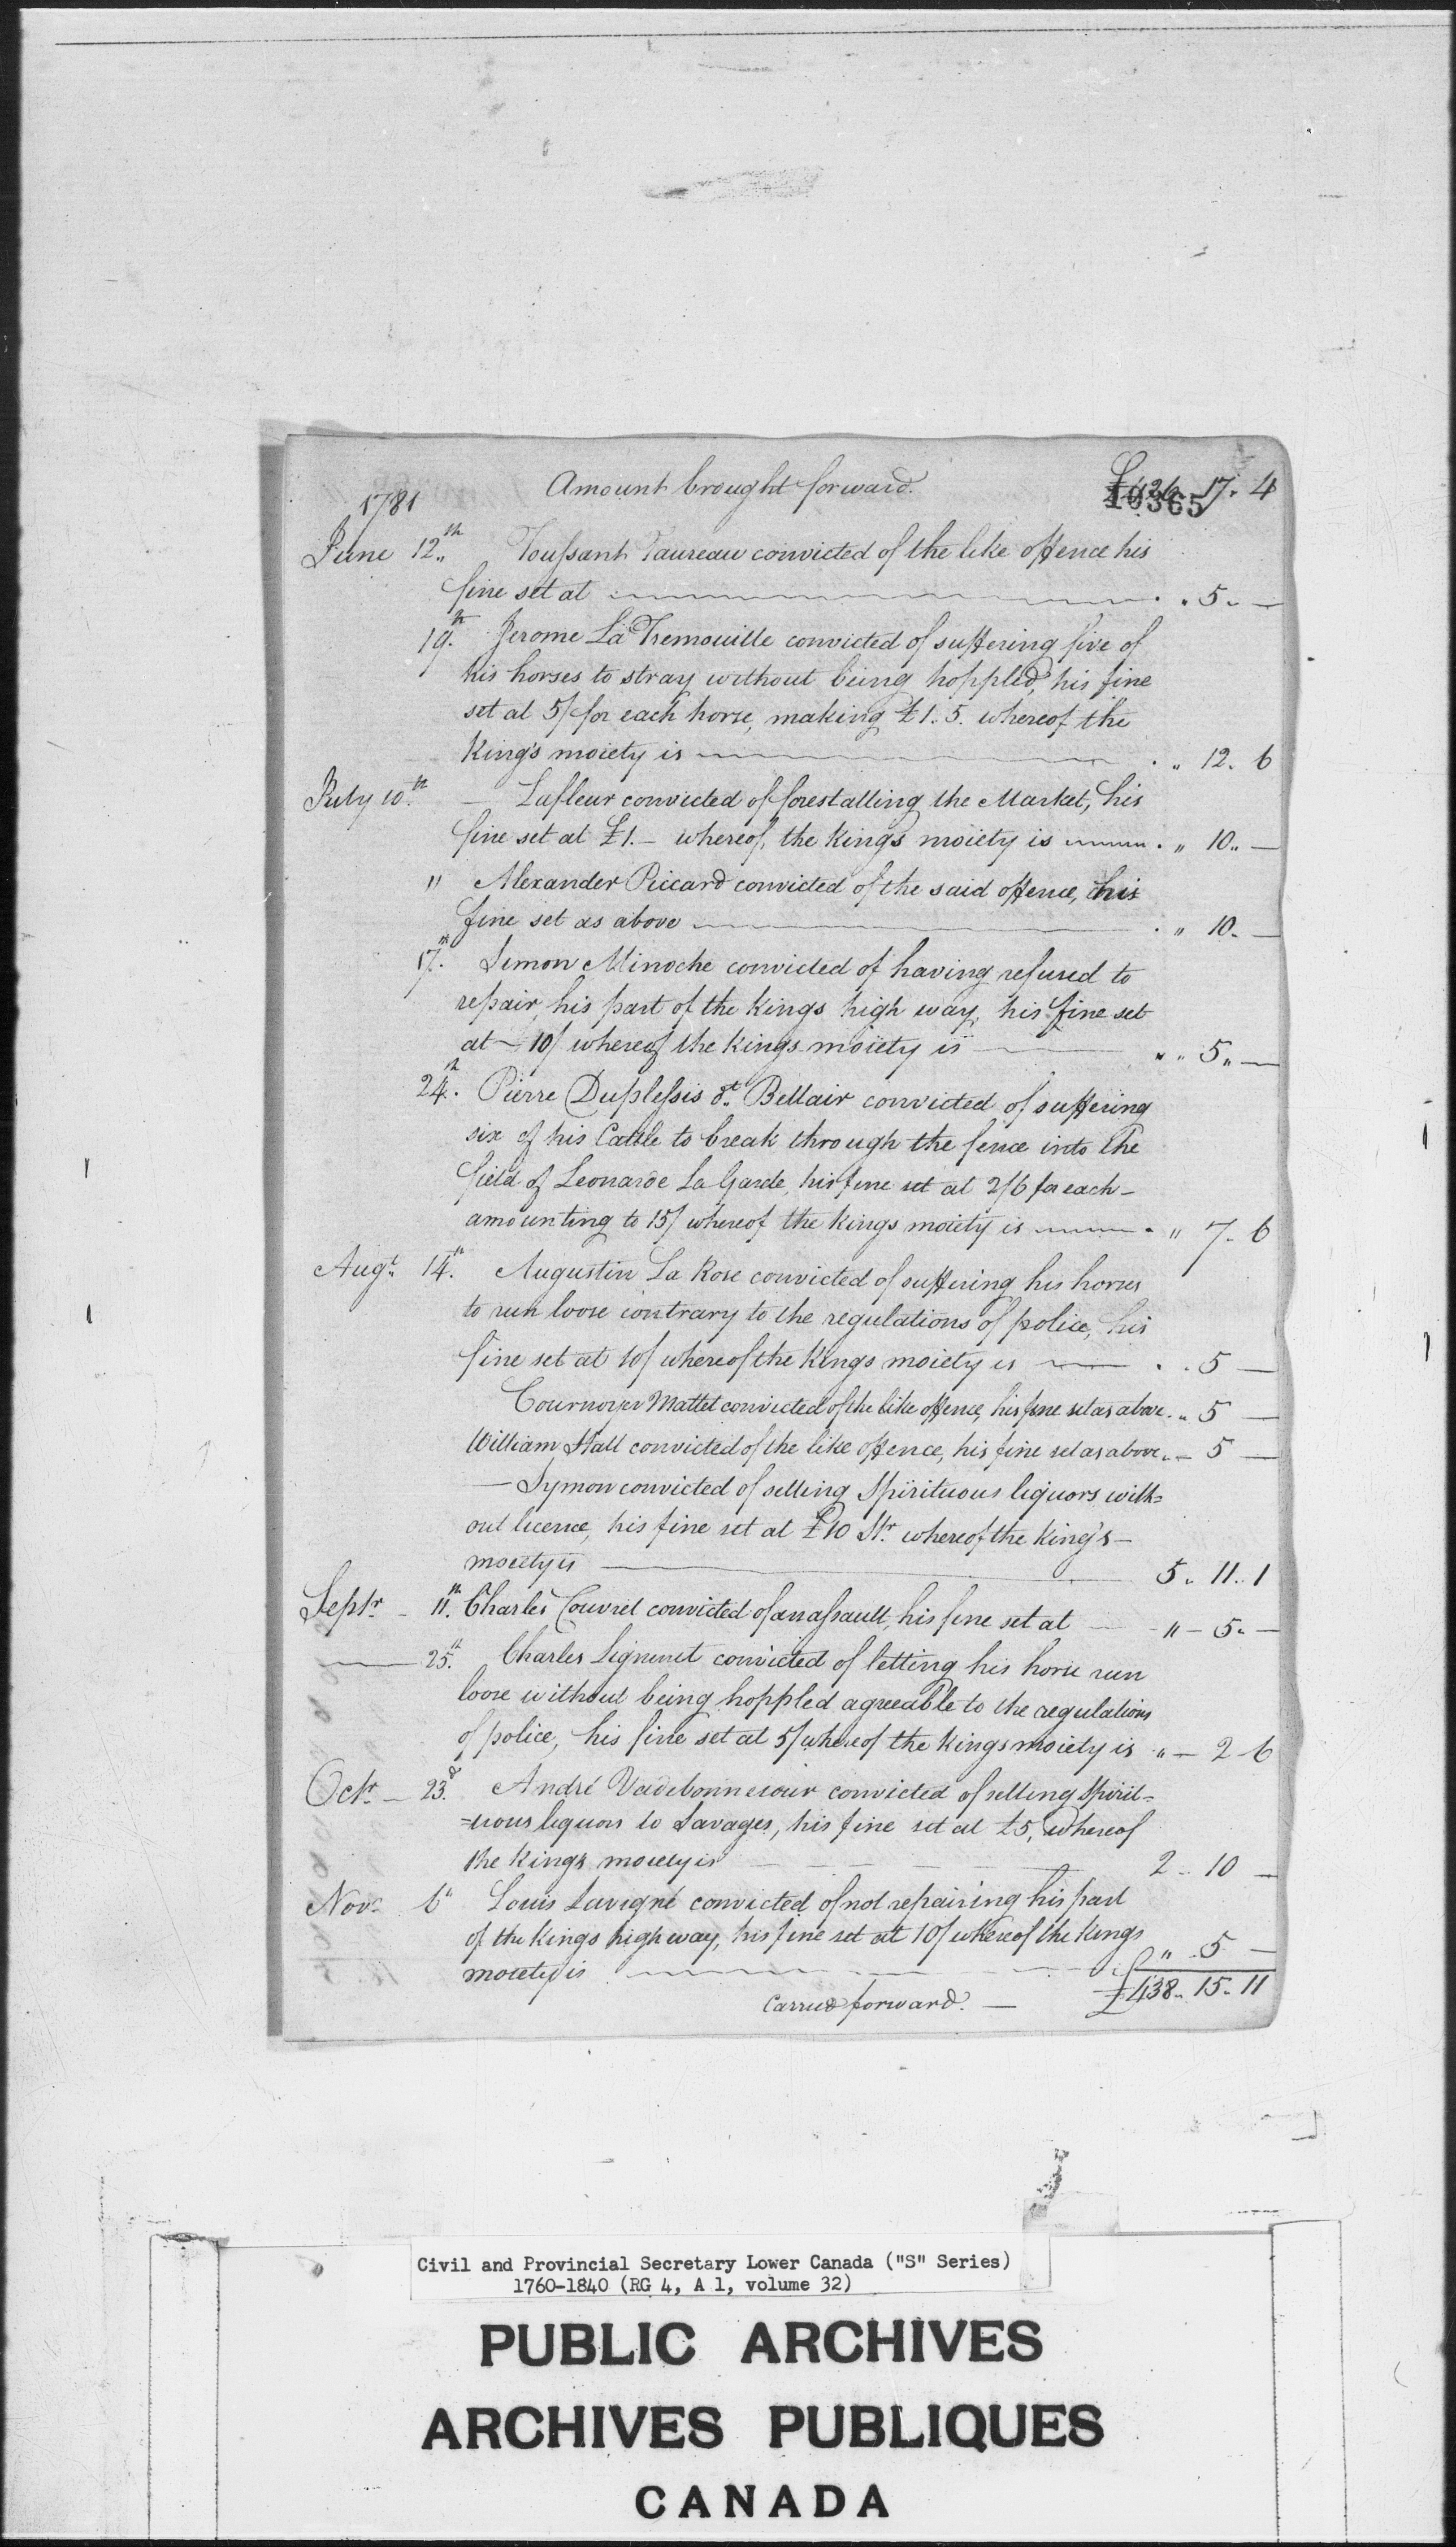 Amount brought forward. £426. 17. 4
10365
1781
June 12th Toussant Taureau convicted of the like offence his
fine set at . „ 5 „ —
19th Jerome La Tremouille convicted of suffering five of
his horses to stray without being hoppled, his fine
set at 5/ for each horse, making £1. 5. whereof the
King's moiety is . „ 12. 6
July 10th — Lafleur convicted of forestalling the Market, his
fine set at £1. — whereof, the Kings moiety is . „ 10 „ —
" Alexander Piccard convicted of the said offence, his
fine set as above . „ 10. —
17th Simon Minoche convicted of having refused to
repair, his part of the Kings high way, his fine set
at — 10/ whereof the Kings moiety is „ „ 5 „ —
24th Pierre Duplessis dt. Bellair convicted of suffering
six of his Cattle to break through the fence into the
field of Leonarde La Garde, his fine set at 2/6 for each —
amounting to 15/ whereof the Kings moiety is . „ 7. 6
Augt. 14th Augustin La Rose convicted of suffering his horses
to run loose contrary to the regulations of police, his
fine set at 10/ whereof the Kings moiety is . . 5 —
Cournoyer Mattet convicted of the like offence, his fine set as above. „ 5 —
William Hall convicted of the like offence, his fine set as above. — 5 —
— Symon convicted of selling Spirituous liquors with=
out licence, his fine set at £10 Str. whereof the King's —
moiety is 5 „ 11 „ 1
Septr — 11th Charles Couvret convicted of an assault, his fine set at — " — 5. —
25th Charles Ligneuet convicted of letting his horse run
loose without being hoppled agreeable to the regulations
of police, his fine set at 5/ whereof the Kings moiety is „ — 2 6
Octr — 23d André Vadebonnecour convicted of selling Spirit=
=uous liquors to Savages, his fine set at £5, whereof
the Kings moiety is 2 „ 10 —
Novr 6th Louis Lavigné convicted of not repairing his part
of the Kings high way, his fine set at 10/ whereof the Kings
moiety is " 5 —
Carried forward. — £438 „ 15 „ 11
Civil and Provincial Secretary Lower Canada ("S" Series)
1760-1840 (RG 4, A 1, volume 32)
PUBLIC ARCHIVES
ARCHIVES PUBLIQUES
CANADA